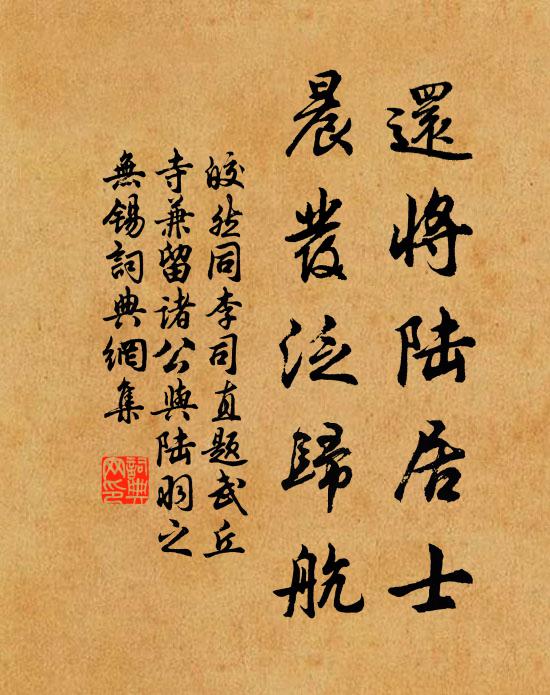 還將陆居士
晨發泛歸航
皎然同李司直題武丘
寺兼留諸公與陆羽之
無锡詞典網集
詞典
网印